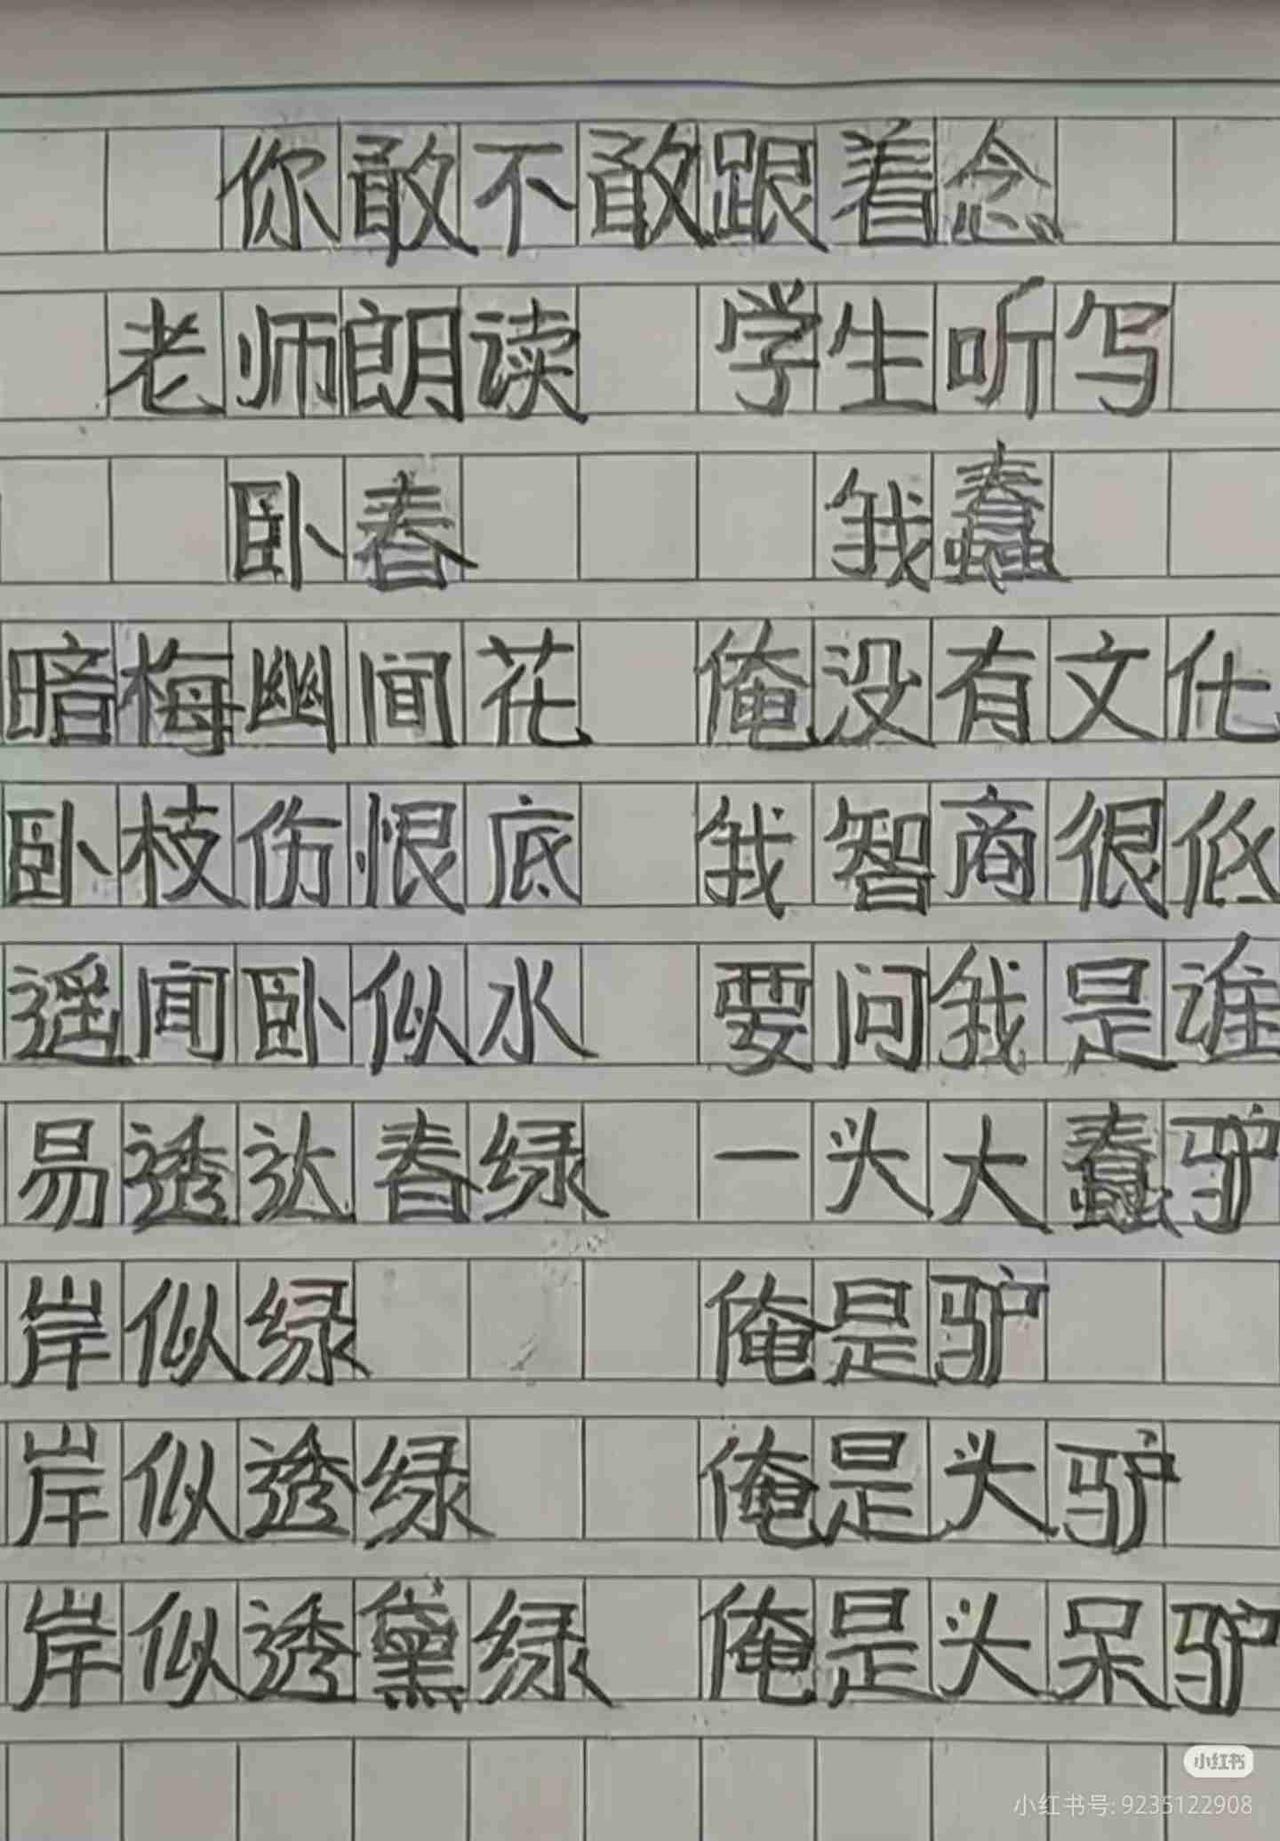 你敢不敢跟着念
老师朗读 学生听写
卧春 我蠢
暗梅幽间花 俺没有文化
卧枝伤恨底 我智商很低
遥闻卧似水 要问我是谁
易透达春绿 一头大蠢驴
岸似绿 俺是驴
岸似透绿 俺是头驴
岸似透黛绿 俺是头呆驴
小红书
小红书号: 9235122908